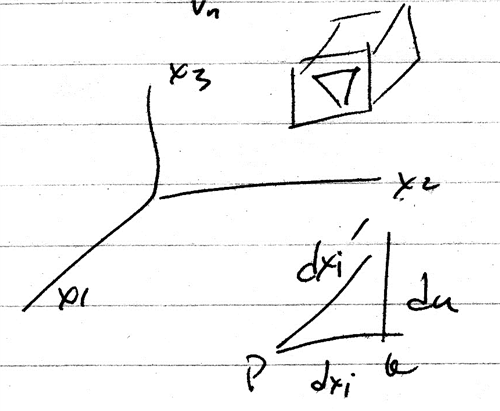 Vn
x3
x2
x1
dxi'
du
P
dxi
Q